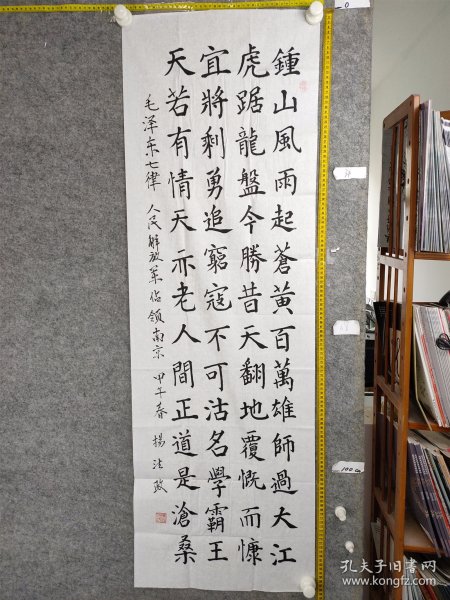 鍾山風雨起蒼黃百萬雄師過大江
虎踞龍盤今勝昔天翻地覆慨而慷
宜將剩勇追窮寇不可沽名學霸王
天若有情天亦老人間正道是滄桑
毛泽东七律 人民解放军佔領南京 甲午春 楊法
0
100cm
孔夫子旧书网
www.kongfz.com